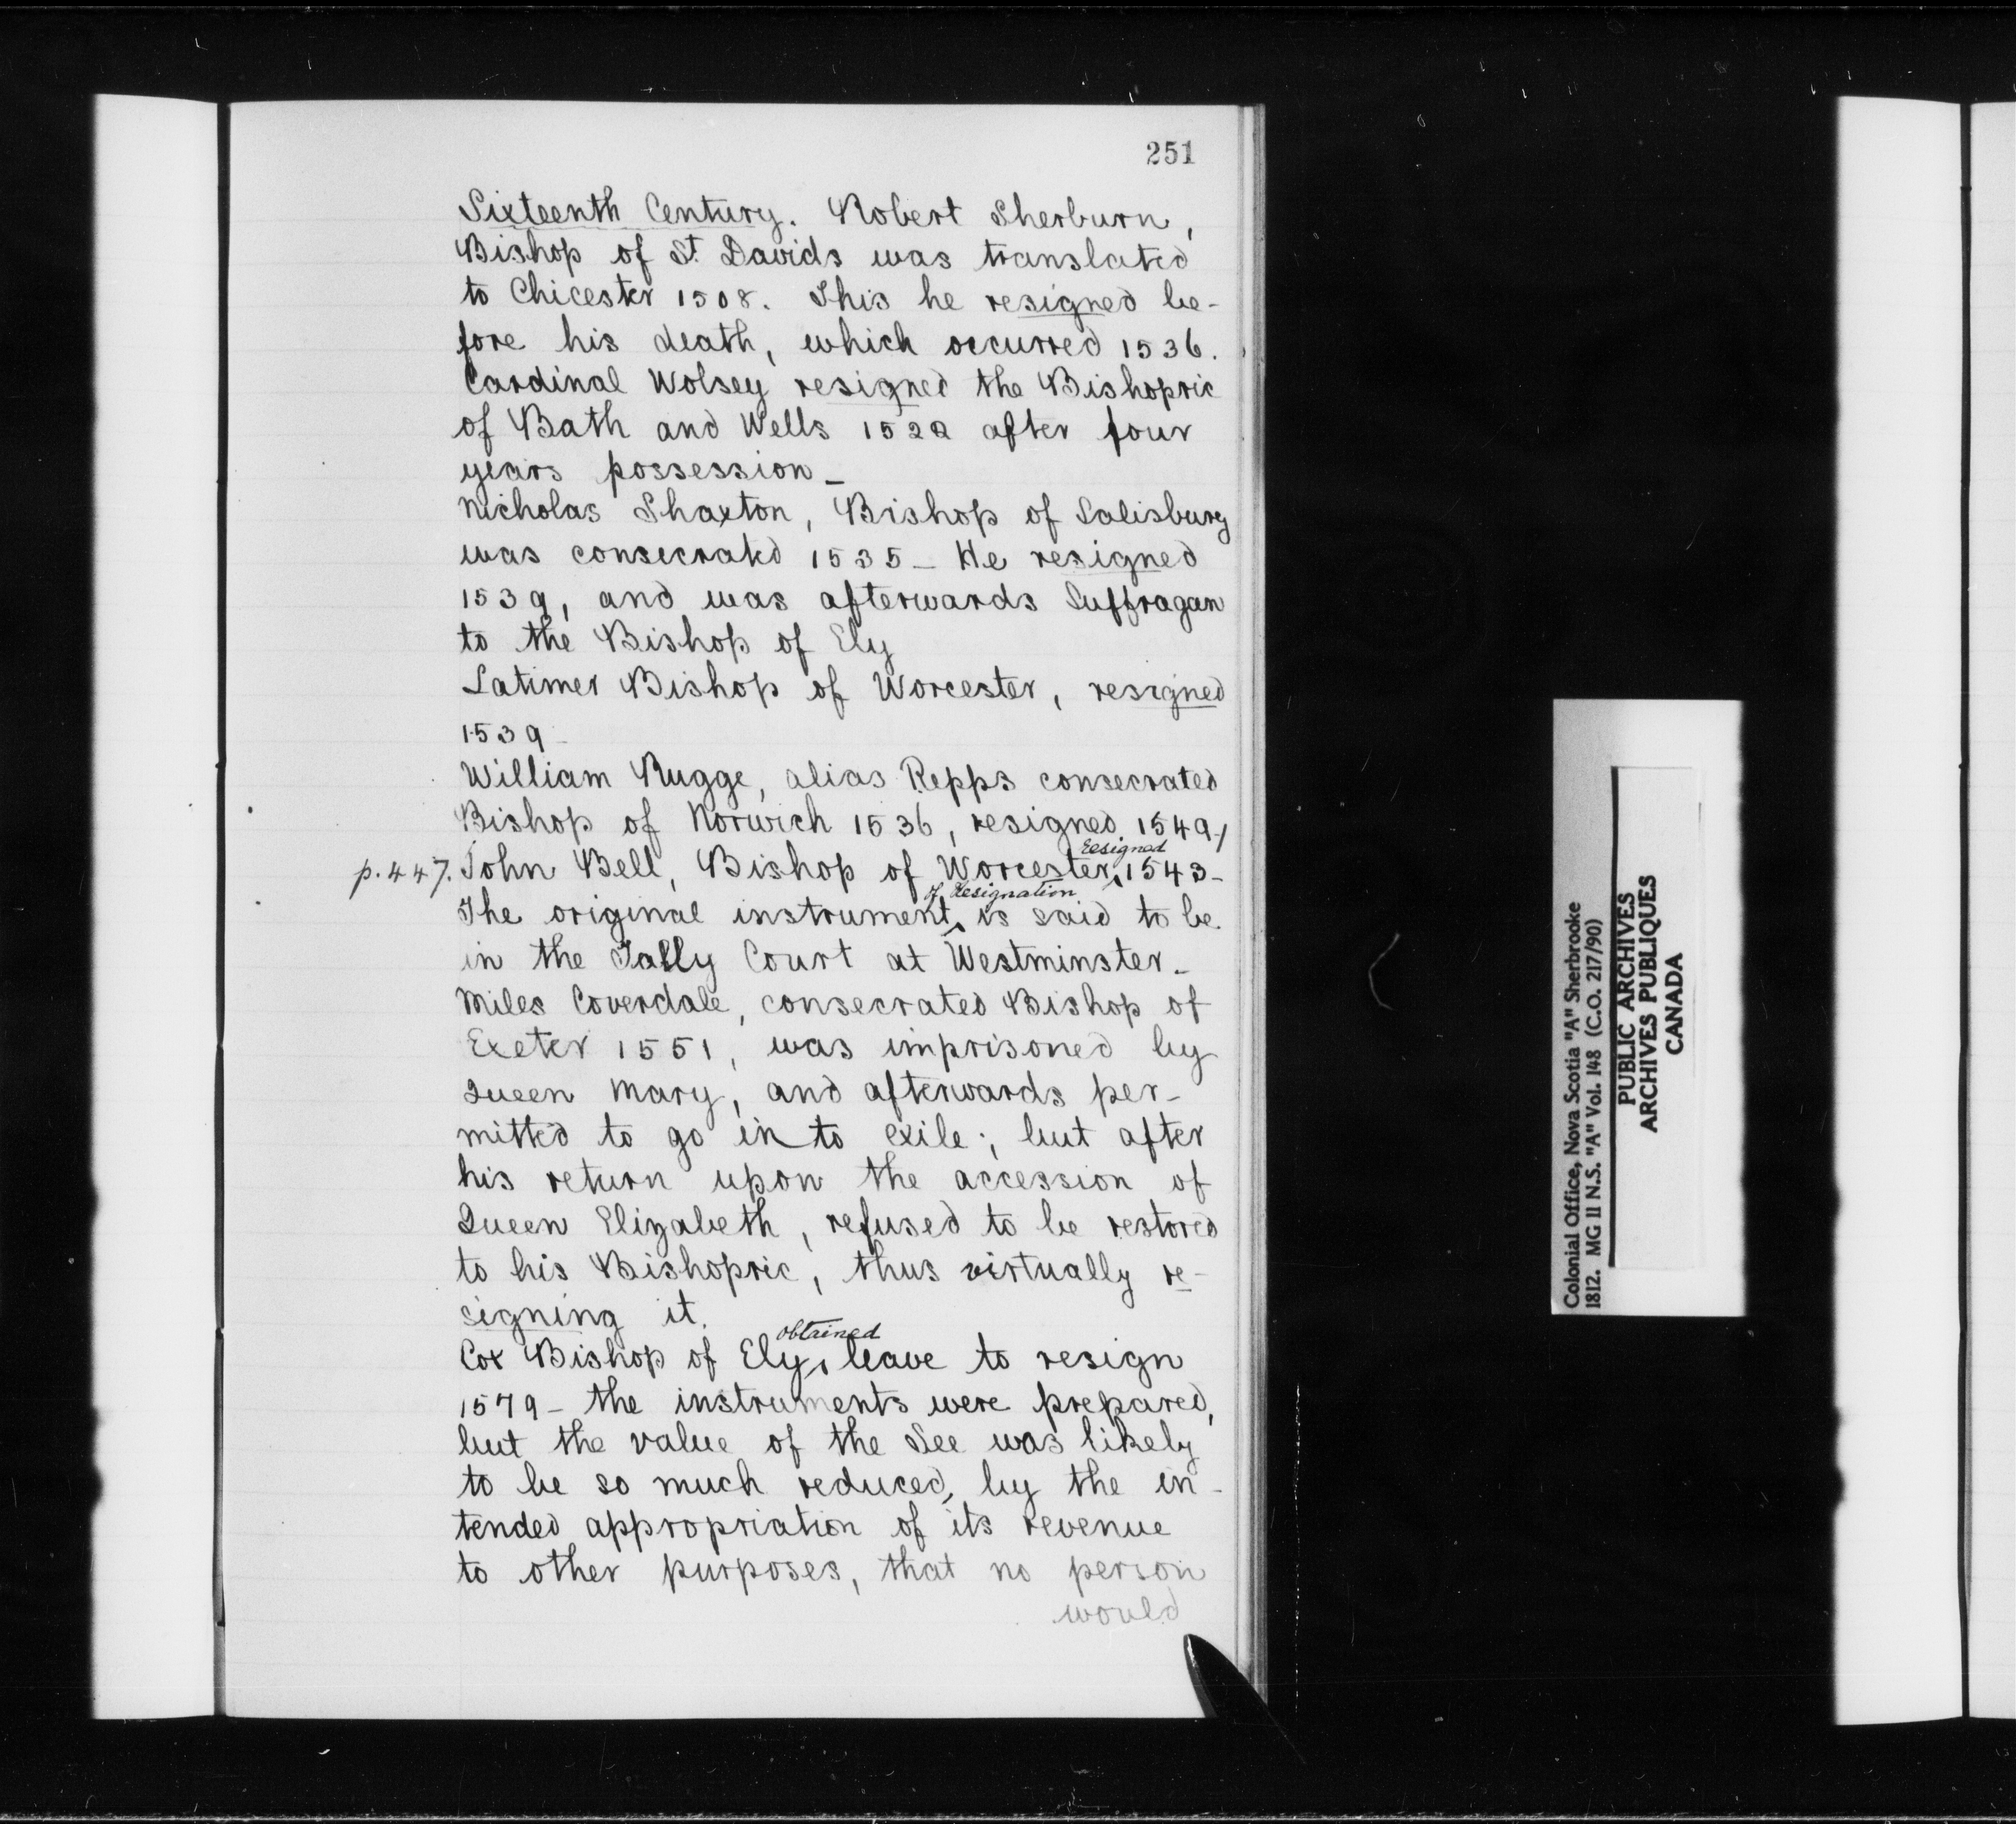 251
Sixteenth Century. Robert Sherburn,
Bishop of St. Davids was translated
to Chicester 1508. This he resigned be-
fore his death, which occurred 1536.
Cardinal Wolsey resigned the Bishopric
of Bath and Wells 1522 after four
years possession_
Nicholas Shaxton, Bishop of Salisbury
was consecrated 1535_ He resigned
1539, and was afterwards Suffragan
to the Bishop of Ely
Latimer Bishop of Worcester, resigned
1539_
William Rugge, alias Repps consecrated
Bishop of Norwich 1536, resigned 1549_/
p. 447. John Bell, Bishop of Worcester, resigned 1543_
The original instrument of Resignation is said to be
in the Tally Court at Westminster_
Miles Coverdale, consecrated Bishop of
Exeter 1551, was imprisoned by
Queen Mary, and afterwards per-
mitted to go in to exile; but after
his return upon the accession of
Queen Elizabeth, refused to be restored
to his Bishopric, thus virtually re-
signing it.
Cox Bishop of Ely, obtained leave to resign
1579_ the instruments were prepared,
but the value of the See was likely
to be so much reduced, by the in-
tended appropriation of its revenue
to other purposes, that no person
would
Colonial Office, Nova Scotia "A" Sherbrooke
1812. MG 11 N.S. "A" Vol. 148 (C.O. 217/90)
PUBLIC ARCHIVES
ARCHIVES PUBLIQUES
CANADA